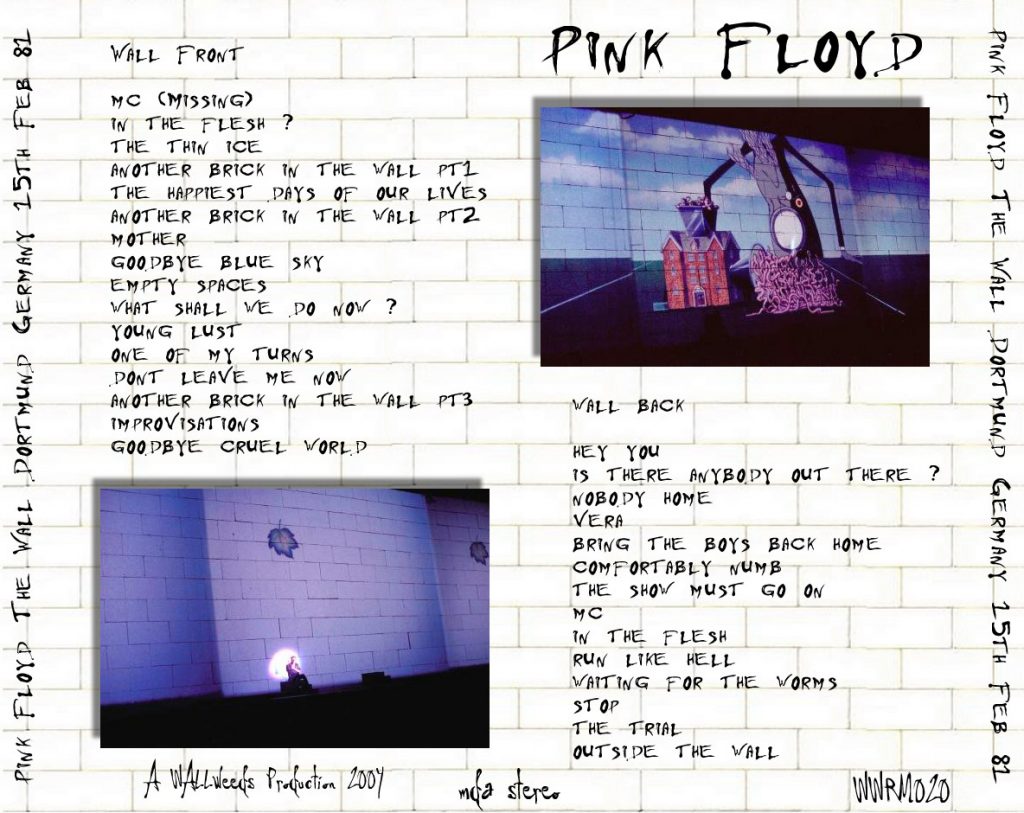 PINK FLOYD THE WALL DORTMUND GERMANY 15TH FEB 81
WALL FRONT
MC (MISSING)
IN THE FLESH ?
THE THIN ICE
ANOTHER BRICK IN THE WALL PT1
THE HAPPIEST DAYS OF OUR LIVES
ANOTHER BRICK IN THE WALL PT2
MOTHER
GOODBYE BLUE SKY
EMPTY SPACES
WHAT SHALL WE DO NOW ?
YOUNG LUST
ONE OF MY TURNS
DONT LEAVE ME NOW
ANOTHER BRICK IN THE WALL PT3
IMPROVISATIONS
GOODBYE CRUEL WORLD
PINK FLOYD
WALL BACK
HEY YOU
IS THERE ANYBODY OUT THERE ?
NOBODY HOME
VERA
BRING THE BOYS BACK HOME
COMFORTABLY NUMB
THE SHOW MUST GO ON
MC
IN THE FLESH
RUN LIKE HELL
WAITING FOR THE WORMS
STOP
THE TRIAL
OUTSIDE THE WALL
A WALLweeds Production 2004
mda stereo
WWRM020
PINK FLOYD THE WALL DORTMUND GERMANY 15TH FEB 81